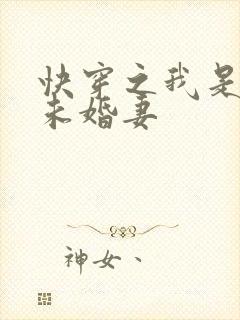 快穿之我是
未婚妻
神女、